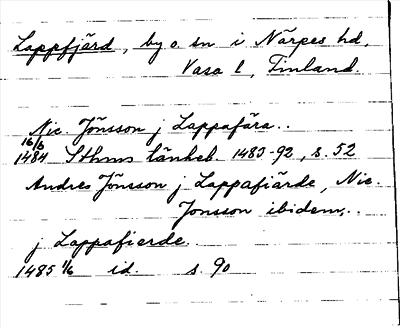 Lappfjärd, by o. sn i Närpes hd,
Vasa l, Finland.
Nic. Jönsson j Lappafära..
16/6
1484 Sthms tänkeb. 1483-92, s. 52
Andres Jönsson j Lappafiärde, Nic.
Jonsson ibidem..
j Lappafierde.
1485 1/6 id. s. 90